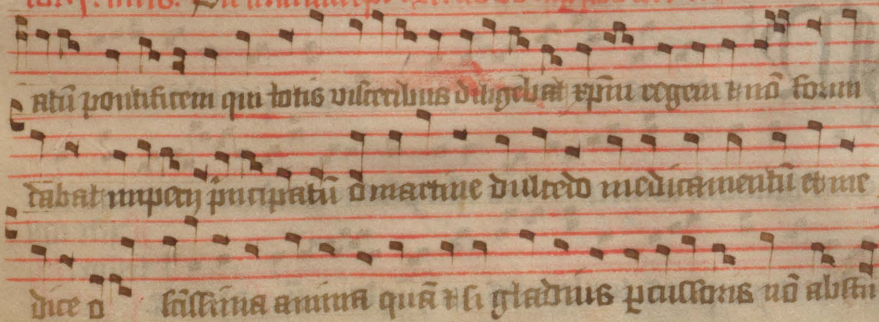 atū pontificem qui totis visceribus diligebat xpm regem et nō formi
dabat imperij pncipatū o martine dulcedo medicamentū et me
dice o scissima anima quā etsi gladius pcussoris nō abstu